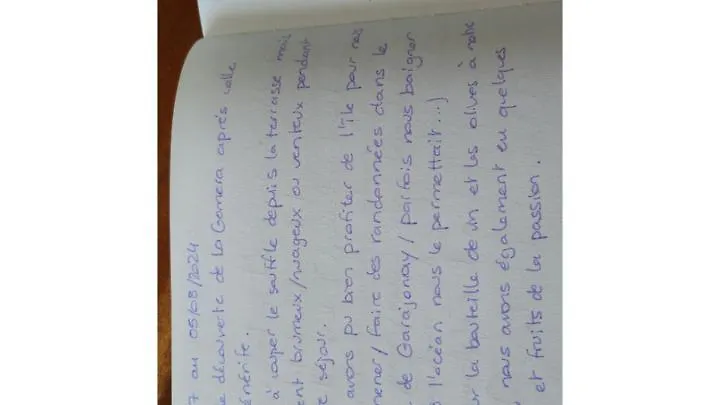 7 au 05/08/2024
e découverte de La Gomera après celle
énérife.
à couper le souffle depuis la terrasse mais
ent brumeux/nuageux ou venteux pendant
e séjour.
avons pu bien profiter de l'île pour nous
mener/faire des randonnées dans le
de Garajonay/parfois nous baigner
l'océan nous le permettait...)
ur la bouteille de vin et les olives à notre
nous avons également eu quelques
et fruits de la passion.